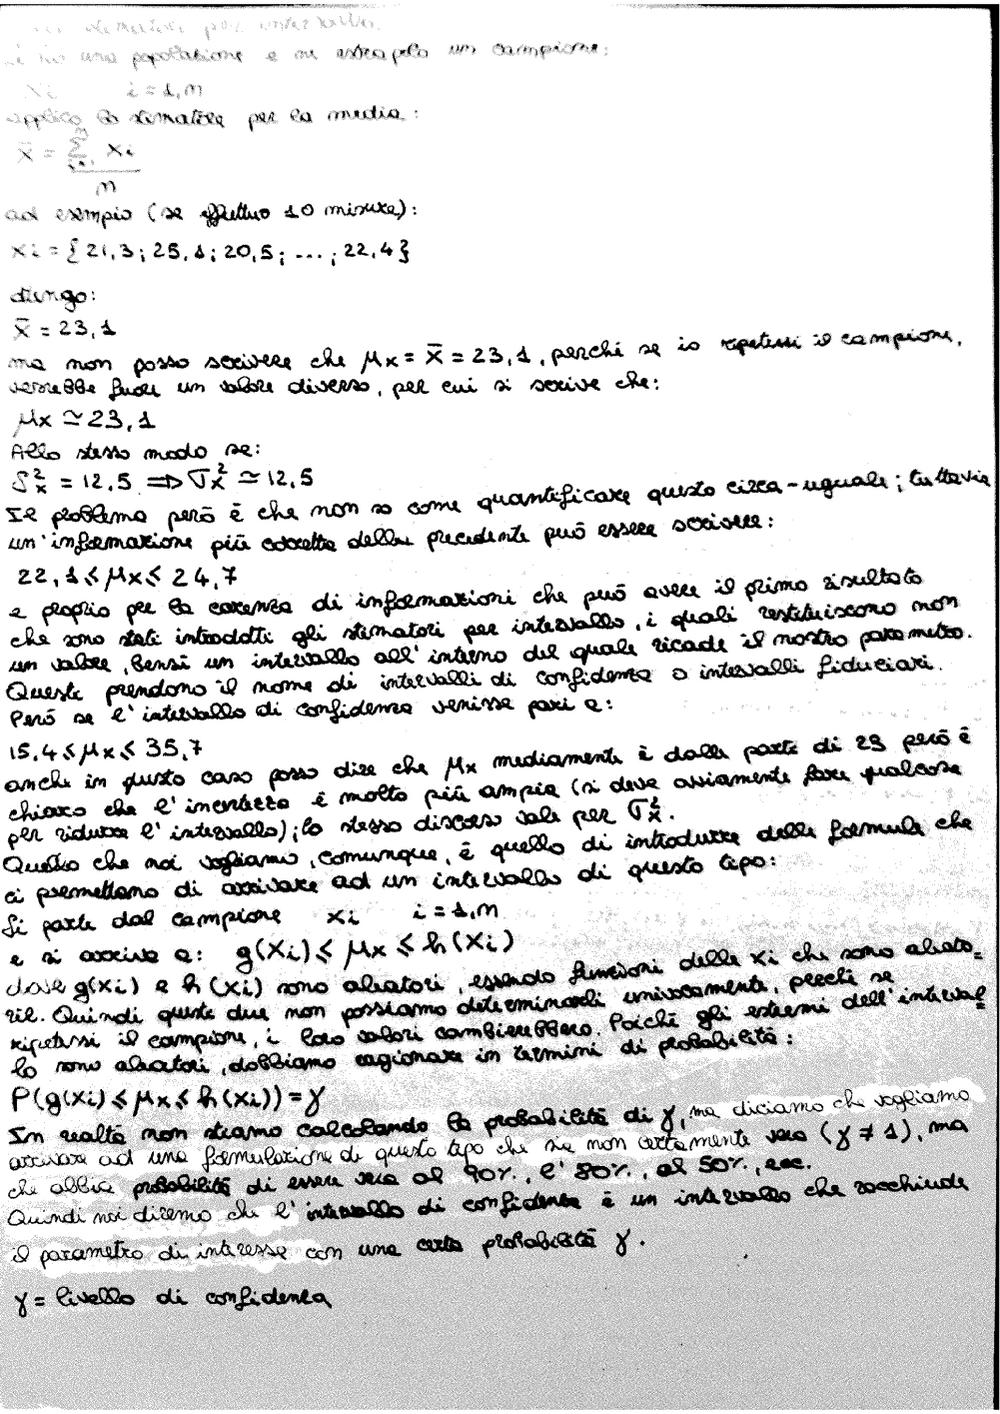 stimatori per intervallo.
ho una popolazione e ne estrapolo un campione:
xi i = 1, n
applico lo stimatore per la media:
x̄ = Σ xi / n
ad esempio (se effettuo 10 misure):
xi = {21,3; 25,1; 20,5; ...; 22,4}
ottengo:
x̄ = 23,1
ma non posso scrivere che μx = x̄ = 23,1, perché se io ripetessi il campione,
verrebbe fuori un valore diverso, per cui si scrive che:
μx ≃ 23,1
Allo stesso modo se:
S²x = 12,5 ⇒ σ²x ≃ 12,5
Il problema però è che non so come quantificare questo circa-uguale; tuttavia
un'informazione più corretta della precedente può essere scrivere:
22,1 ≤ μx ≤ 24,7
e proprio per la carenza di informazioni che può avere il primo risultato
che sono stati introdotti gli stimatori per intervallo, i quali restituiscono non
un valore, bensì un intervallo all'interno del quale ricade il nostro parametro.
Questi prendono il nome di intervalli di confidenza o intervalli fiduciari.
Però se l'intervallo di confidenza venisse pari a:
15,4 ≤ μx ≤ 35,7
anche in questo caso posso dire che μx mediamente è dalle parti di 23 però è
chiaro che l'incertezza è molto più ampia (si deve ovviamente fare qualcosa
per ridurre l'intervallo); lo stesso discorso vale per σ²x.
Quello che noi vogliamo, comunque, è quello di introdurre delle formule che
ci permettano di arrivare ad un intervallo di questo tipo:
Si parte dal campione xi i = 1, n
e si arriva a: g(xi) ≤ μx ≤ h(xi)
dove g(xi) e h(xi) sono aleatori, essendo funzioni delle xi che sono aleato=
rie. Quindi queste due non possiamo determinarli univocamente, perché se
ripetessi il campione, i loro valori cambierebbero. Poiché gli estremi dell'interval=
lo sono aleatori, dobbiamo ragionare in termini di probabilità:
P(g(xi) ≤ μx ≤ h(xi)) = γ
In realtà non stiamo calcolando la probabilità di γ, ma diciamo che vogliamo
arrivare ad una formulazione di questo tipo che sia non certamente vera (γ ≠ 1), ma
che abbia probabilità di essere vera al 90%, l'80%, al 50%, ecc.
Quindi noi diremo che l'intervallo di confidenza è un intervallo che racchiude
il parametro di interesse con una certa probabilità γ.
γ = livello di confidenza